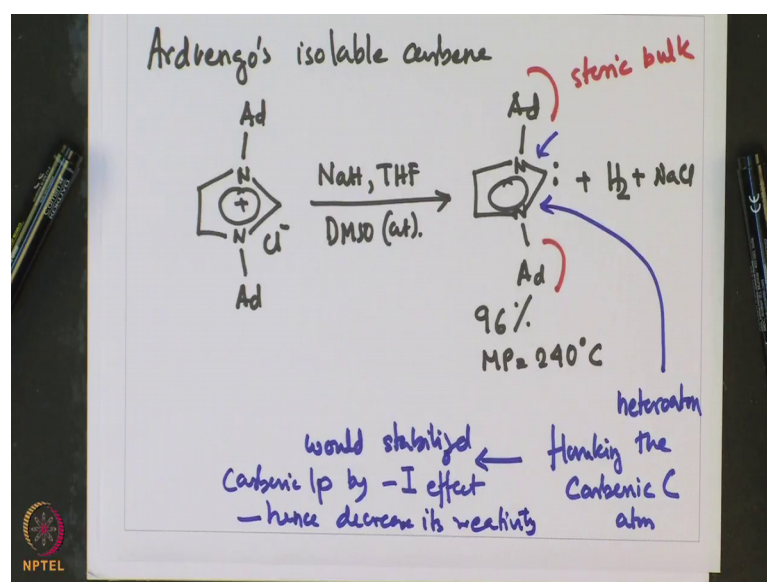 Arduengo's isolable carbene
steric bulk
Ad
Ad
N
N
+
N
Cl⁻
Ad
NaH, THF
DMSO (cat).
N
Ad
: + H₂ + NaCl
96%
MP = 240°C
heteroatom
flanking the
Carbenic C
atm
would stabilized
Carbenic lp by -I effect
- hence decrease its reativity
CE
NPTEL